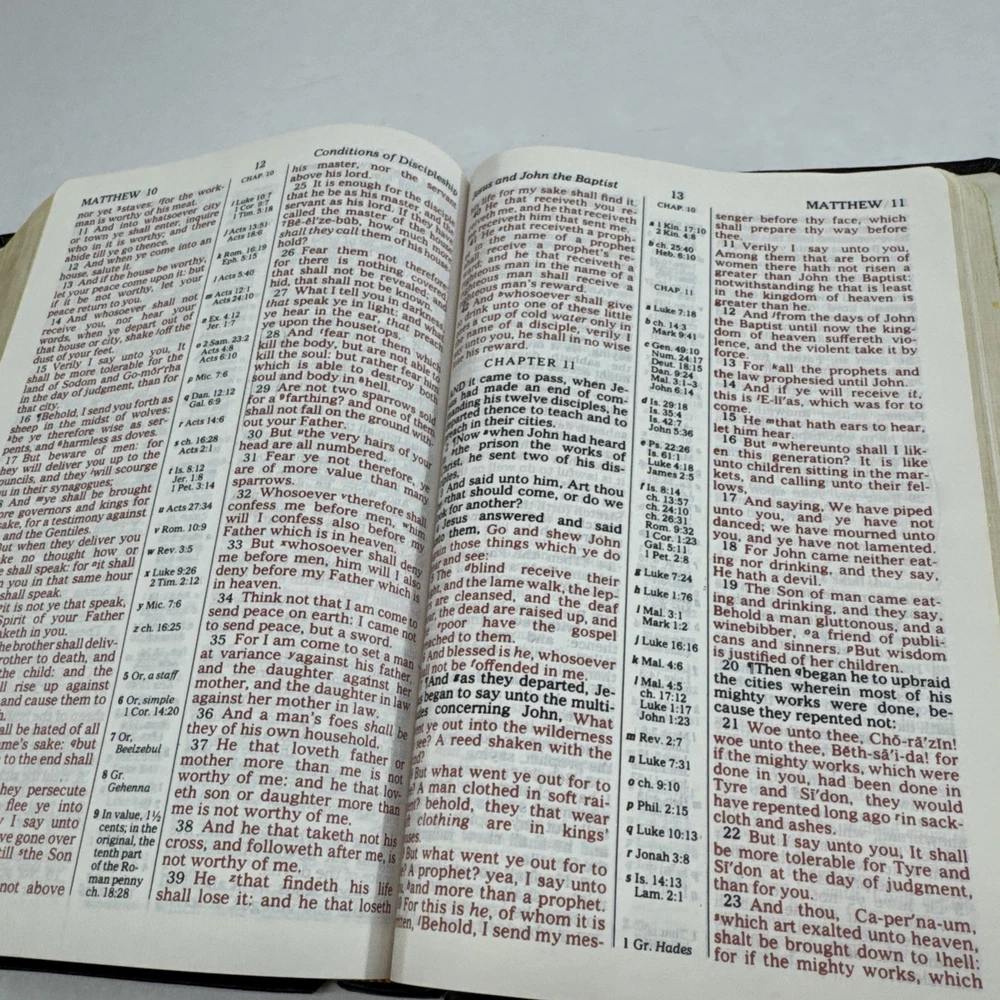 MATTHEW 10
12
Conditions of Discipleship
nor yet ⁵staves: ⁱfor the work-
man is worthy of his meat.
11 And into whatsoever city
or town ye shall enter, inquire
who in it is worthy; and there
abide till ye go thence.
12 And when ye come into an
house, salute it.
13 And if the house be worthy,
let your peace come upon it: but
if it be not worthy, let your
peace return to you.
14 And whosoever shall not
receive you, nor hear your
words, when ye depart out of
that house or city, shake off the
dust of your feet.
15 Verily I say unto you, It
shall be more tolerable for the
land of Sodom and Go-mŏr'rha
in the day of judgment, than for
that city.
16 ¶Behold, I send you forth as
sheep in the midst of wolves:
be ye therefore wise as ser-
pents, and ⁶harmless as doves.
17 But beware of men: for
they will deliver you up to the
councils, and they will scourge
you in their synagogues;
And ye shall be brought
governors and kings for
sake, for a testimony against
and the Gentiles.
But when they deliver you
no thought how or
shall speak: for it shall
you in that same hour
shall speak.
it is not ye that speak,
Spirit of your Father
in you.
the brother shall deliv-
brother to death, and
the child: and the
rise up against
and cause them to
shall be hated of all
name's sake: but
to the end shall
they persecute
flee ye into
I say unto
have gone over
till the Son
not above
CHAP. 10
i Luke 10:7
1 Cor. 9:7
1 Tim. 5:18
j Acts 13:51
Acts 18:6
k Rom. 16:19
Eph. 5:15
l Acts 5:40
m Acts 12:1
Acts 24:10
n Ex. 4:12
Jer. 1:7
o 2 Sam. 23:2
Acts 4:8
Acts 6:10
p Mic. 7:6
q Dan. 12:12
Gal. 6:9
r Acts 14:6
s ch. 16:28
Acts 2:1
t Is. 8:12
Jer. 1:8
1 Pet. 3:14
u Acts 27:34
v Rom. 10:9
w Rev. 3:5
x Luke 9:26
2 Tim. 2:12
y Mic. 7:6
z ch. 16:25
5 Or, a staff
6 Or, simple
1 Cor. 14:20
7 Or,
Beelzebul
8 Gr.
Gehenna
9 In value, 1½
cents; in the
original, the
tenth part
of the Ro-
man penny
ch. 18:28
his master, nor the servant
above his lord.
25 It is enough for the disciple
that he be as his master, and the
servant as his lord. If they have
called the master of the house
⁷Bē-ĕl'ze-bŭb, how much more
shall they call them of his house-
hold?
26 Fear them not therefore:
for there is nothing covered,
that shall not be revealed; and
hid, that shall not be known.
27 What I tell you in darkness,
that speak ye in light: and what
ye hear in the ear, that preach
ye upon the housetops.
28 And fear not them which
kill the body, but are not able to
kill the soul: but rather fear him
which is able to destroy both
soul and body in ⁸hell.
29 Are not two sparrows sold
for a ⁹farthing? and one of them
shall not fall on the ground with-
out your Father.
30 But ᵘthe very hairs of your
head are all numbered.
31 Fear ye not therefore, ye
are of more value than many
sparrows.
32 Whosoever ᵛtherefore shall
confess me before men, him
will I confess also before my
Father which is in heaven.
33 But ˣwhosoever shall deny
me before men, him will I also
deny before my Father which is
in heaven.
34 Think not that I am come to
send peace on earth: I came not
to send peace, but a sword.
35 For I am come to set a man
at variance ʸagainst his father,
and the daughter against her
mother, and the daughter in law
against her mother in law.
36 And a man's foes shall be
they of his own household.
37 He that loveth father or
mother more than me is not
worthy of me: and he that lov-
eth son or daughter more than
me is not worthy of me.
38 And he that taketh not his
cross, and followeth after me, is
not worthy of me.
39 He ᶻthat findeth his life
shall lose it: and he that loseth
Jesus and John the Baptist
13
MATTHEW 11
life for my sake shall find it.
He ᵃthat receiveth you re-
ceiveth me, and he that receiveth
receiveth him that sent me.
He ᵃthat receiveth a proph-
in the name of a prophet
receive a prophet's re-
and he that receiveth a
righteous man in the name of a
righteous man shall receive a
righteous man's reward.
And ᵇwhosoever shall give
drink unto one of these little
a cup of cold water only in
name of a disciple, verily I
unto you, he shall in no wise
his reward.
CHAPTER 11
AND it came to pass, when Je-
had made an end of com-
manding his twelve disciples, he
departed thence to teach and to
preach in their cities.
Now ᵃwhen John had heard
the prison the works of
Christ, he sent two of his dis-
ciples,
And said unto him, Art thou
that should come, or do we
look for another?
Jesus answered and said
unto them, Go and shew John
again those things which ye do
and see:
The ᵈblind receive their
sight, and the lame walk, the lep-
are cleansed, and the deaf
the dead are raised up, and
poor have the gospel
preached to them.
And blessed is he, whosoever
shall not be ᶠoffended in me.
And ᵍas they departed, Je-
began to say unto the multi-
tudes concerning John, What
went ye out into the wilderness
see? A reed shaken with the
wind?
But what went ye out for to
A man clothed in soft rai-
ment? behold, they that wear
clothing are in kings'
houses.
But what went ye out for to
A prophet? yea, I say unto
ʰand more than a prophet.
For this is he, of whom it is
written, ⁱBehold, I send my mes-
CHAP. 10
a 1 Kin. 17:10
2 Kin. 4:8
b ch. 25:40
Heb. 6:10
CHAP. 11
a Luke 7:18
b ch. 14:3
Mark 9:41
c Gen. 49:10
Num. 24:17
Deut. 18:15
Dan. 9:24
Mal. 3:1-3
John 6:14
d Is. 29:18
Is. 35:4
Is. 42:7
John 5:36
e Ps. 22:26
Is. 61:1
Luke 4:18
James 2:5
f Is. 8:14
ch. 13:57
ch. 24:10
ch. 26:31
Rom. 9:32
1 Cor. 1:23
Gal. 5:11
1 Pet. 2:8
g Luke 7:24
h Luke 1:76
i Mal. 3:1
Mark 1:2
j Luke 16:16
k Mal. 4:6
l Mal. 4:5
ch. 17:12
Luke 1:17
John 1:23
m Rev. 2:7
n Luke 7:31
o ch. 9:10
p Phil. 2:15
q Luke 10:13
r Jonah 3:8
s Is. 14:13
Lam. 2:1
1 Gr. Hades
senger before thy face, which
shall prepare thy way before
thee.
11 Verily I say unto you,
Among them that are born of
women there hath not risen a
greater than John the Baptist:
notwithstanding he that is least
in the kingdom of heaven is
greater than he.
12 And ʲfrom the days of John
the Baptist until now the king-
dom of heaven suffereth vio-
lence, and the violent take it by
force.
13 For ᵏall the prophets and
the law prophesied until John.
14 And if ye will receive it,
this is ˡE-lī'as, which was for to
come.
15 He ᵐthat hath ears to hear,
let him hear.
16 But ⁿwhereunto shall I lik-
en this generation? It is like
unto children sitting in the mar-
kets, and calling unto their fel-
lows,
17 And saying, We have piped
unto you, and ye have not
danced; we have mourned unto
you, and ye have not lamented.
18 For John came neither eat-
ing nor drinking, and they say,
He hath a devil.
19 The Son of man came eat-
ing and drinking, and they say,
Behold a man gluttonous, and a
winebibber, ᵒa friend of publi-
cans and sinners. ᵖBut wisdom
is justified of her children.
20 ¶Then ᑫbegan he to upbraid
the cities wherein most of his
mighty works were done, be-
cause they repented not:
21 Woe unto thee, Chō-rā'zĭn!
woe unto thee, Bĕth-sā'i-da! for
if the mighty works, which were
done in you, had been done in
Tyre and Sī'don, they would
have repented long ago ʳin sack-
cloth and ashes.
22 But I say unto you, It shall
be more tolerable for Tyre and
Sī'don at the day of judgment,
than for you.
23 And thou, Ca-per'na-um,
ˢwhich art exalted unto heaven,
shalt be brought down to ¹hell:
for if the mighty works, which